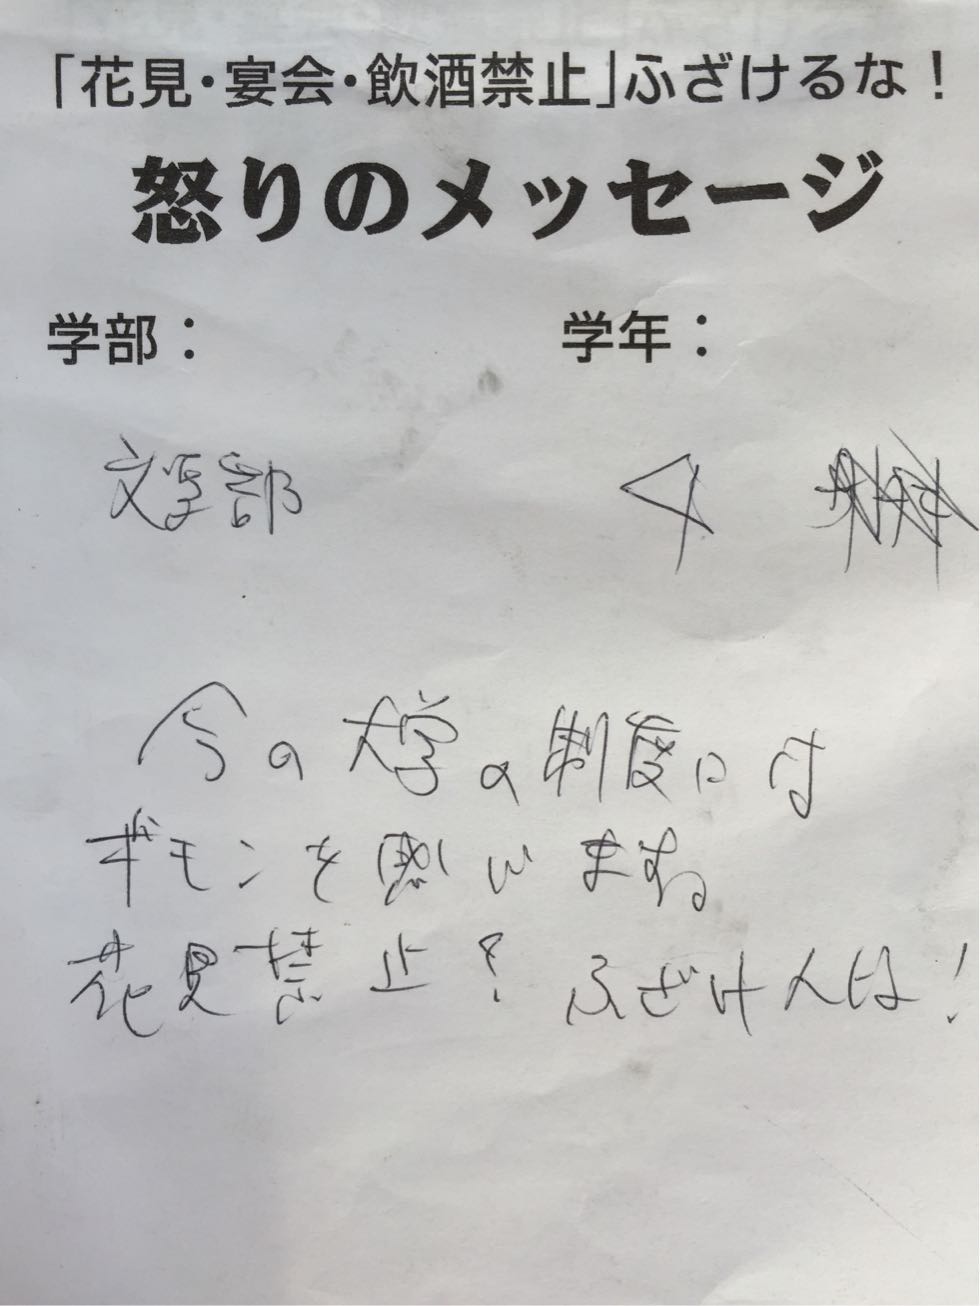 「花見・宴会・飲酒禁止」ふざけるな！
怒りのメッセージ
学部： 学年：
文学部 4
今の大学の制度には
ギモンを感じますね
花見禁止？ふざけんな！